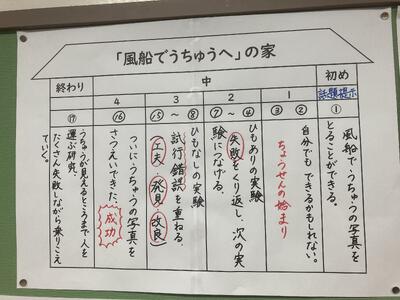 「風船でうちゅうへ」の家
初め
中
終わり
話題提示
1
2
3
4
①
②
③
④
〜
⑦
⑧
〜
⑮
⑯
⑰
風船でうちゅうの写真を
とることができる。
自分でもできるかもしれない。
ちょうせんの始まり
ひもありの実験
失敗をくり返し、次の実
験につなげる。
ひもなしの実験
試行錯誤を重ねる。
工夫 発見 改良
ついにうちゅうの写真を
さつえいできた。
成功
うちゅうが見えるところまで人を
運ぶ研究。
たくさん失敗しながら乗りこえ
ていく。